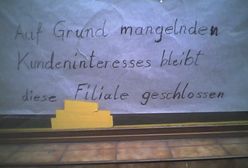 Auf Grund mangelnden
Kundeninteresses bleibt
diese Filiale geschlossen